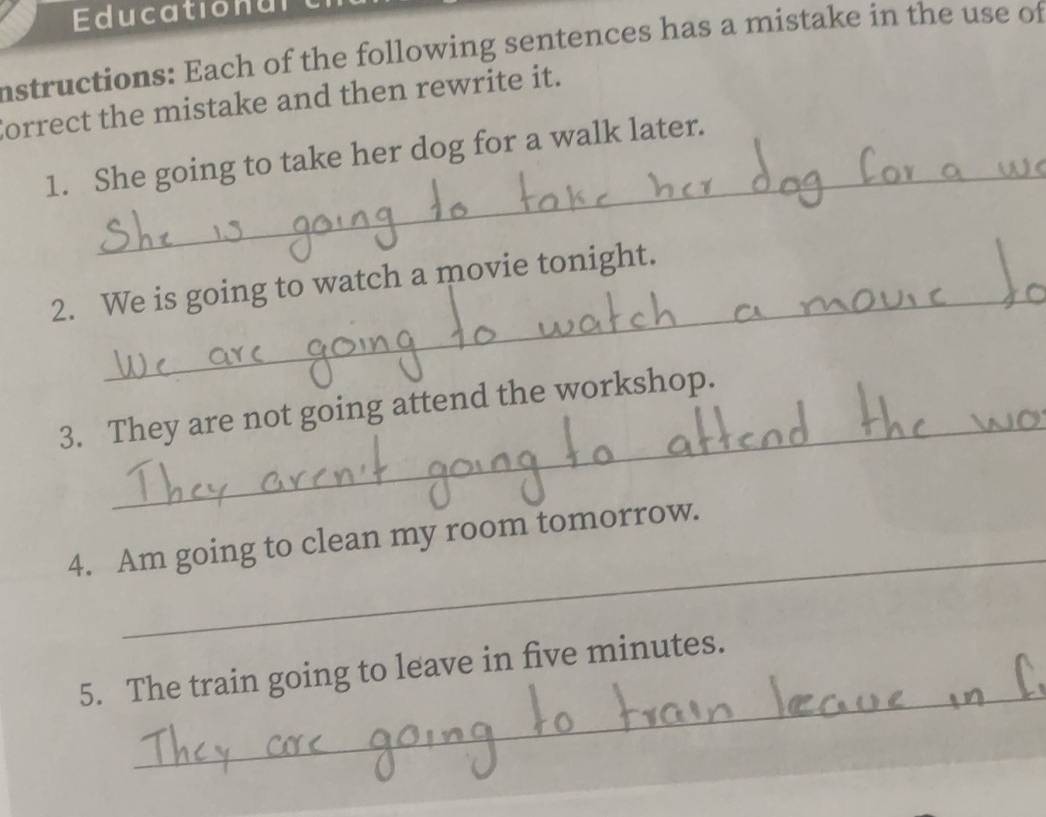 Educational
nstructions: Each of the following sentences has a mistake in the use of
Correct the mistake and then rewrite it.
1. She going to take her dog for a walk later.
She is going to take her dog for a
2. We is going to watch a movie tonight.
We are going to watch a movie to
3. They are not going attend the workshop.
They aren't going to attend the wo
4. Am going to clean my room tomorrow.
5. The train going to leave in five minutes.
They are going to train leave in